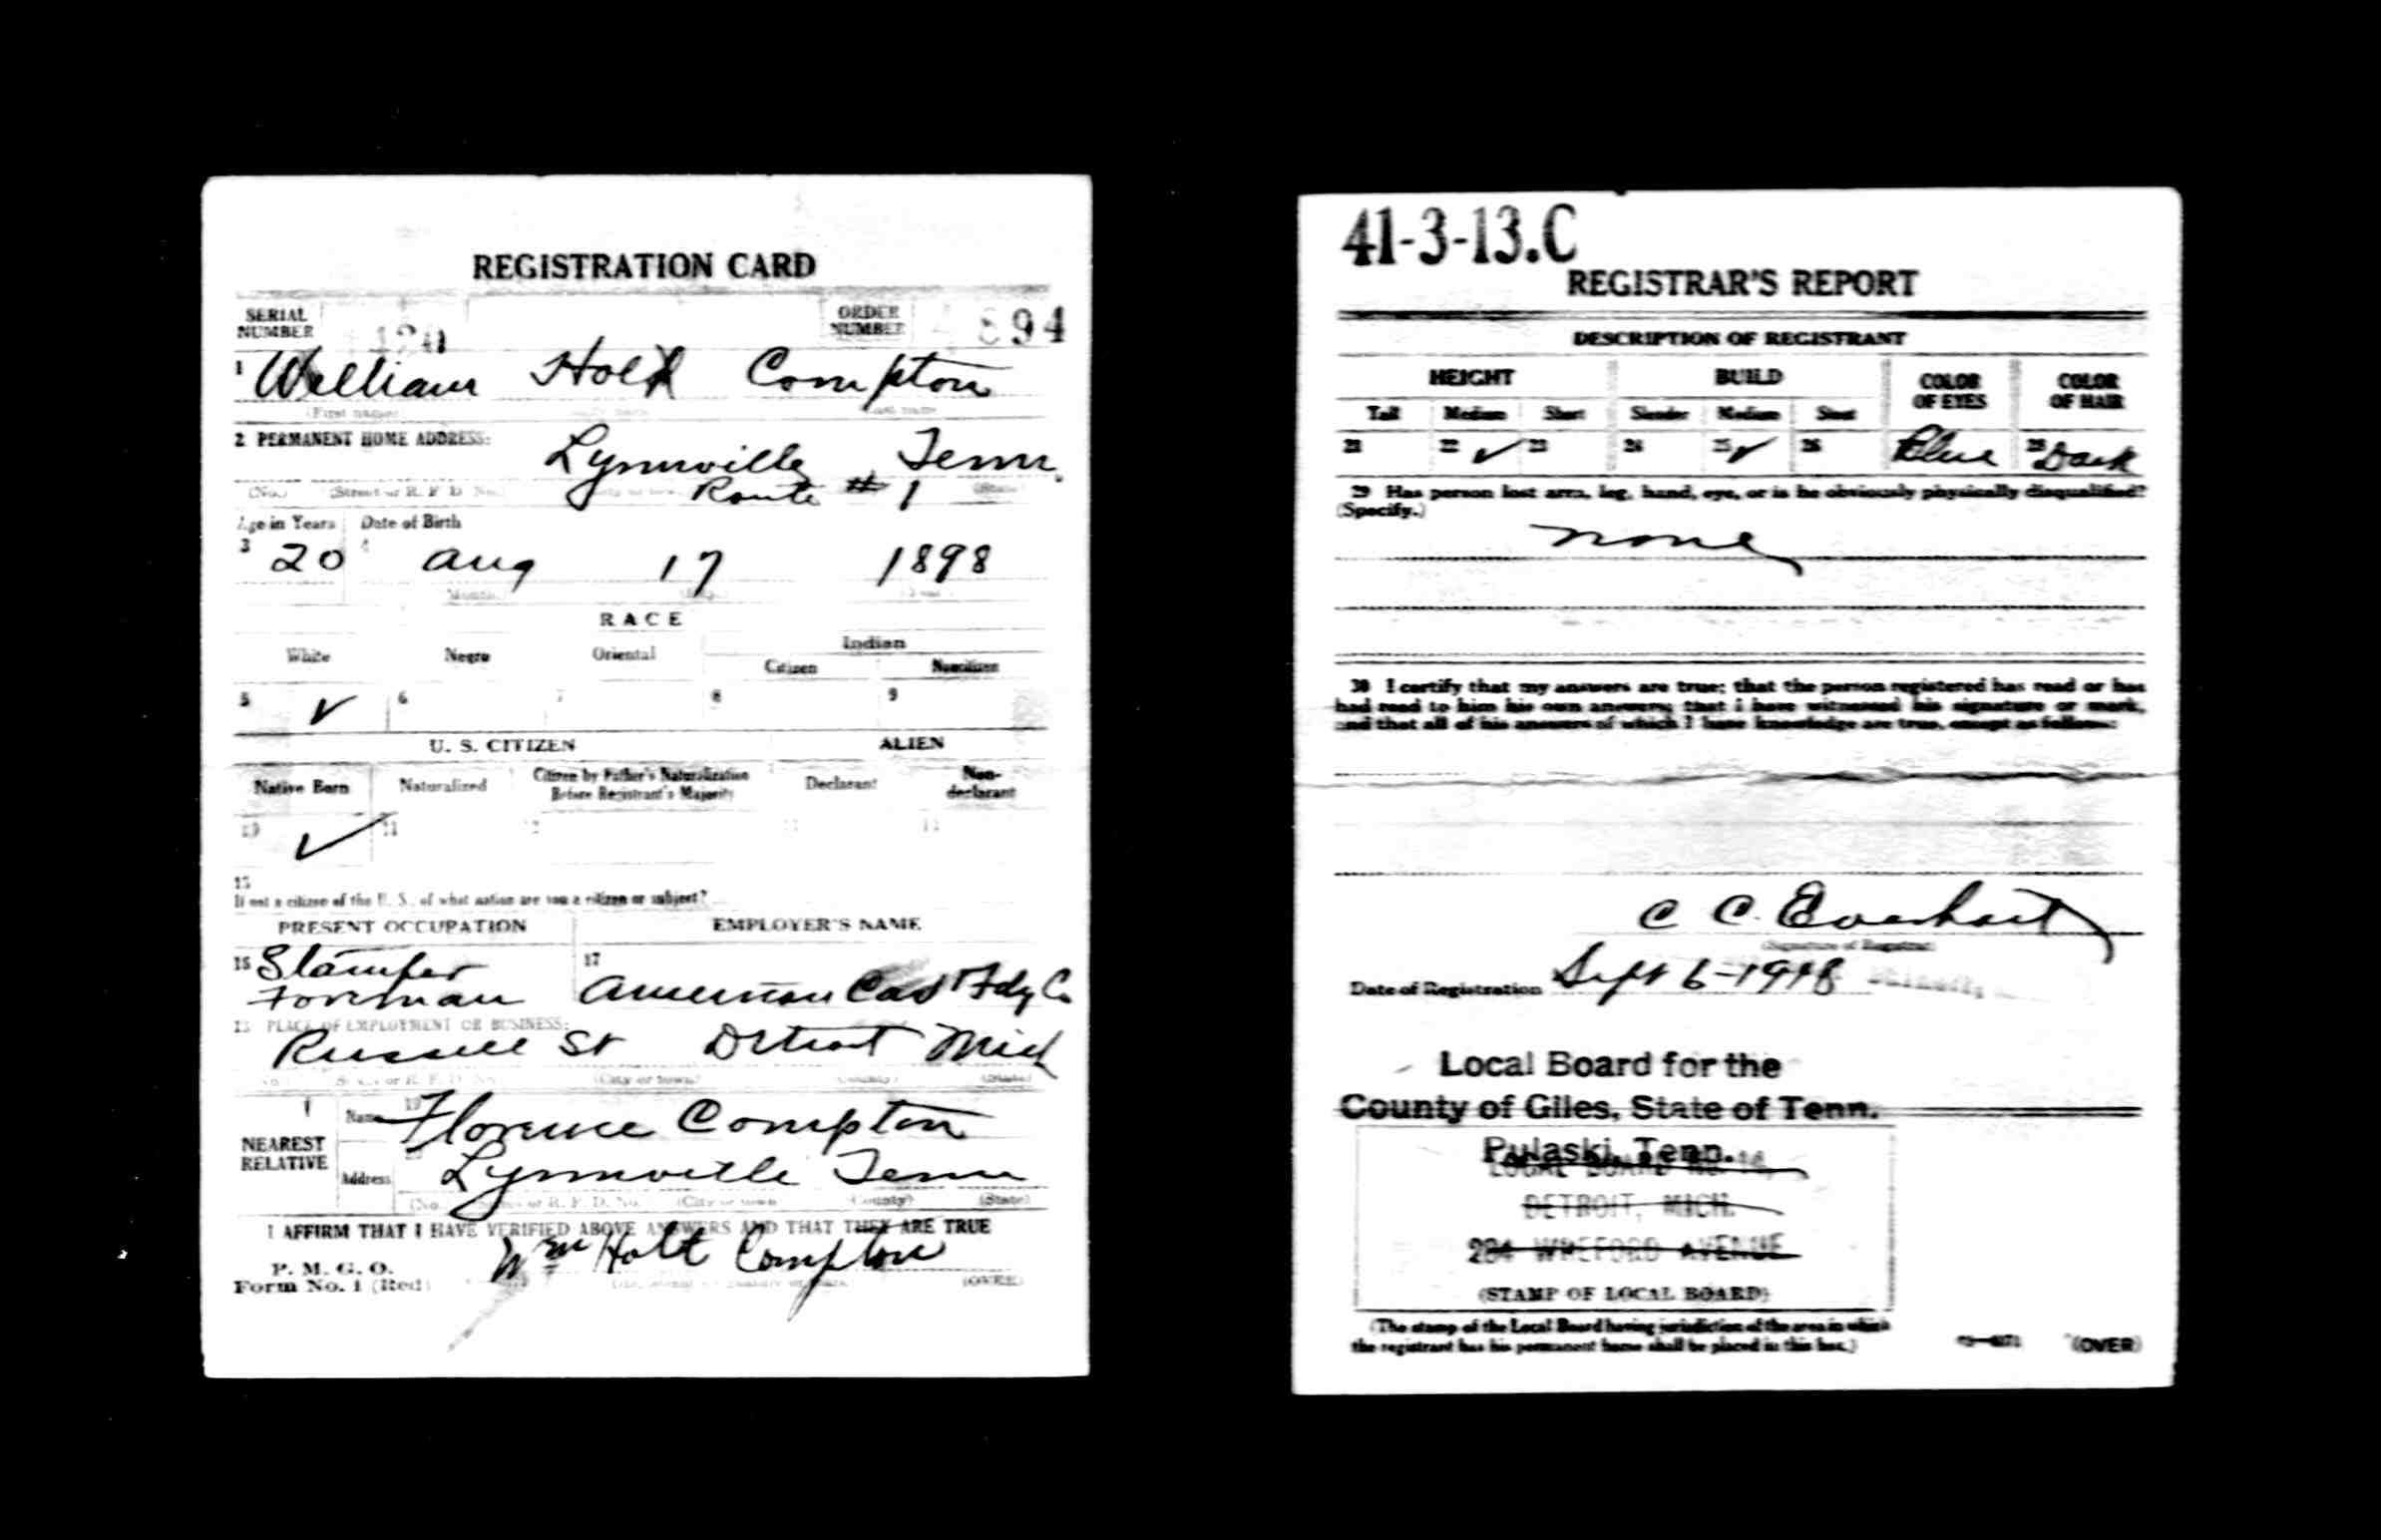 REGISTRATION CARD
SERIAL NUMBER ORDER NUMBER 894
1 William Holt Compton
(First name)
2 PERMANENT HOME ADDRESS: Lynnville Tenn.
(No.) (Street or R. F. D. No.) Route # 1 (State)
Age in Years Date of Birth
3 20 4 Aug 17 1898
(Month.)
RACE
White Negro Oriental Indian
Citizen Noncitizen
5 ✓ 6 7 8 9
U. S. CITIZEN ALIEN
Native Born Naturalized Citizen by Father's Naturalization Before Registrant's Majority Declarant Non-declarant
10 ✓ 11 12
15
If not a citizen of the U. S., of what nation are you a citizen or subject?
PRESENT OCCUPATION EMPLOYER'S NAME
16 Stamper 17
Foreman American Car Fdy Co
PLACE OF EMPLOYMENT OR BUSINESS:
Russell St Detroit Mich
(City or town) (County) (State)
NEAREST RELATIVE
Name 19 Florence Compton
Address Lynnville Tenn
(No.) (Street or R. F. D. No.) (City or town) (County) (State)
I AFFIRM THAT I HAVE VERIFIED ABOVE ANSWERS AND THAT THEY ARE TRUE
P. M. G. O.
Form No. 1 (Red) Wm Holt Compton (OVER)
41-3-13.C
REGISTRAR'S REPORT
DESCRIPTION OF REGISTRANT
HEIGHT BUILD COLOR OF EYES COLOR OF HAIR
Tall Medium Short Slender Medium Stout
21 22 ✓ 23 24 25 ✓ 26 Blue 28 Dark
29 Has person lost arm, leg, hand, eye, or is he obviously physically disqualified?
(Specify.)
none
30 I certify that my answers are true; that the person registered has read or has
had read to him his own answers; that I have witnessed his signature or mark,
and that all of his answers of which I have knowledge are true, except as follows:
C C. Everhart
(Signature of Registrar)
Date of Registration Sept 6-1918
Local Board for the
County of Giles, State of Tenn.
Pulaski, Tenn.
LOCAL BOARD NO. 14,
DETROIT, MICH.
284 WREFORD AVENUE
(STAMP OF LOCAL BOARD)
(The stamp of the Local Board having jurisdiction of the area in which
the registrant has his permanent home shall be placed in this box.)
(OVER)